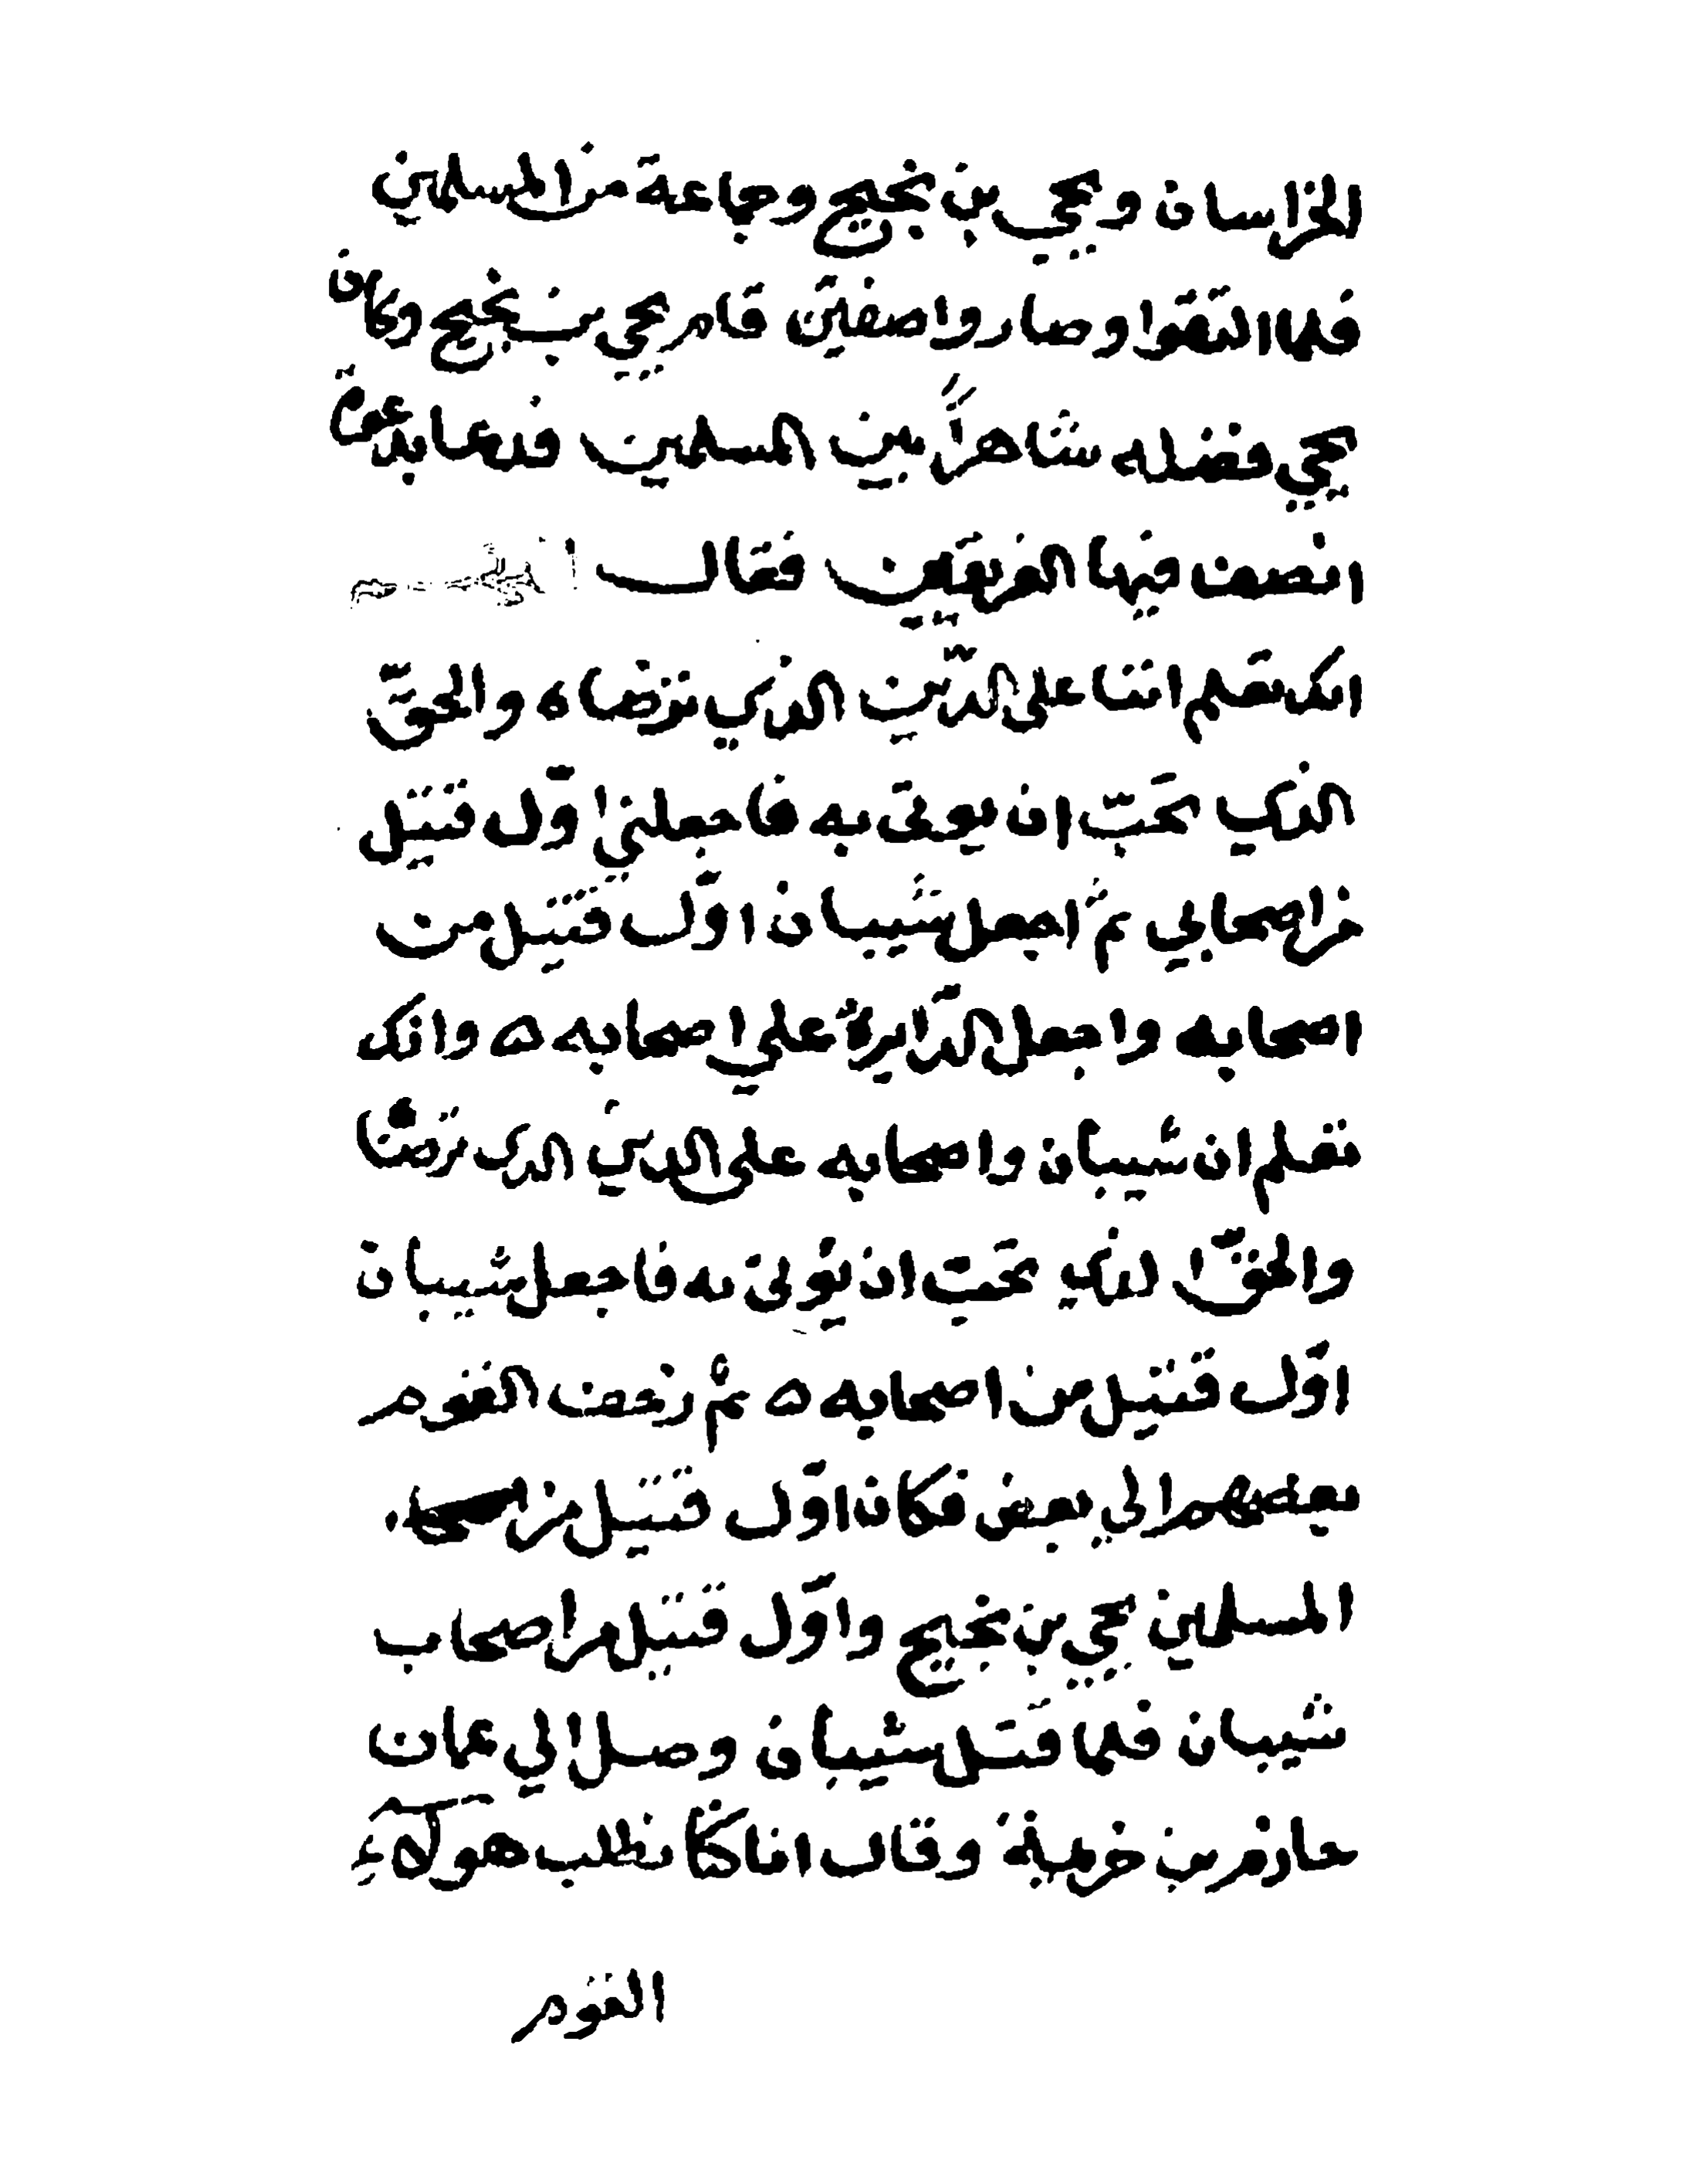 الخراسان ويحيى بن نجيح وجماعة من المسلمين
فلما التقوا وصاروا صفين قام يحيي بن نجيح وكان
يحيي فضله شاهراً بين المسلمين فدعا بدعوة
انصف فيها الفريقين فقال
انك تعلم اننا على الدّين الذي ترضاه والحقّ
الذي تحَبّ ان يوتى به فاجعلني اوّل قتيل
من اصحابي ثم اجعل شيبان اوّل قتيل من
اصحابه واجعل الدّايرة علي اصحابه ه وانك
تعلم ان شيبان واصحابه على الدين الذى ترضاه
والحقّ الذي تحَب ان يُوتى به فاجعل شيبان
اوّل قتيل من اصحابه ه ثمّ زحف القوم
بعضهم الي بعض فكان اوّل قتيل من
المسلمين يحيي بن نجيح واوّل قتيل من اصحاب
شيبان فلما قتل شيبان وصل الي عمان
خازم بن خزيمة وقال انا كنّا نطلب هولآء
القوم